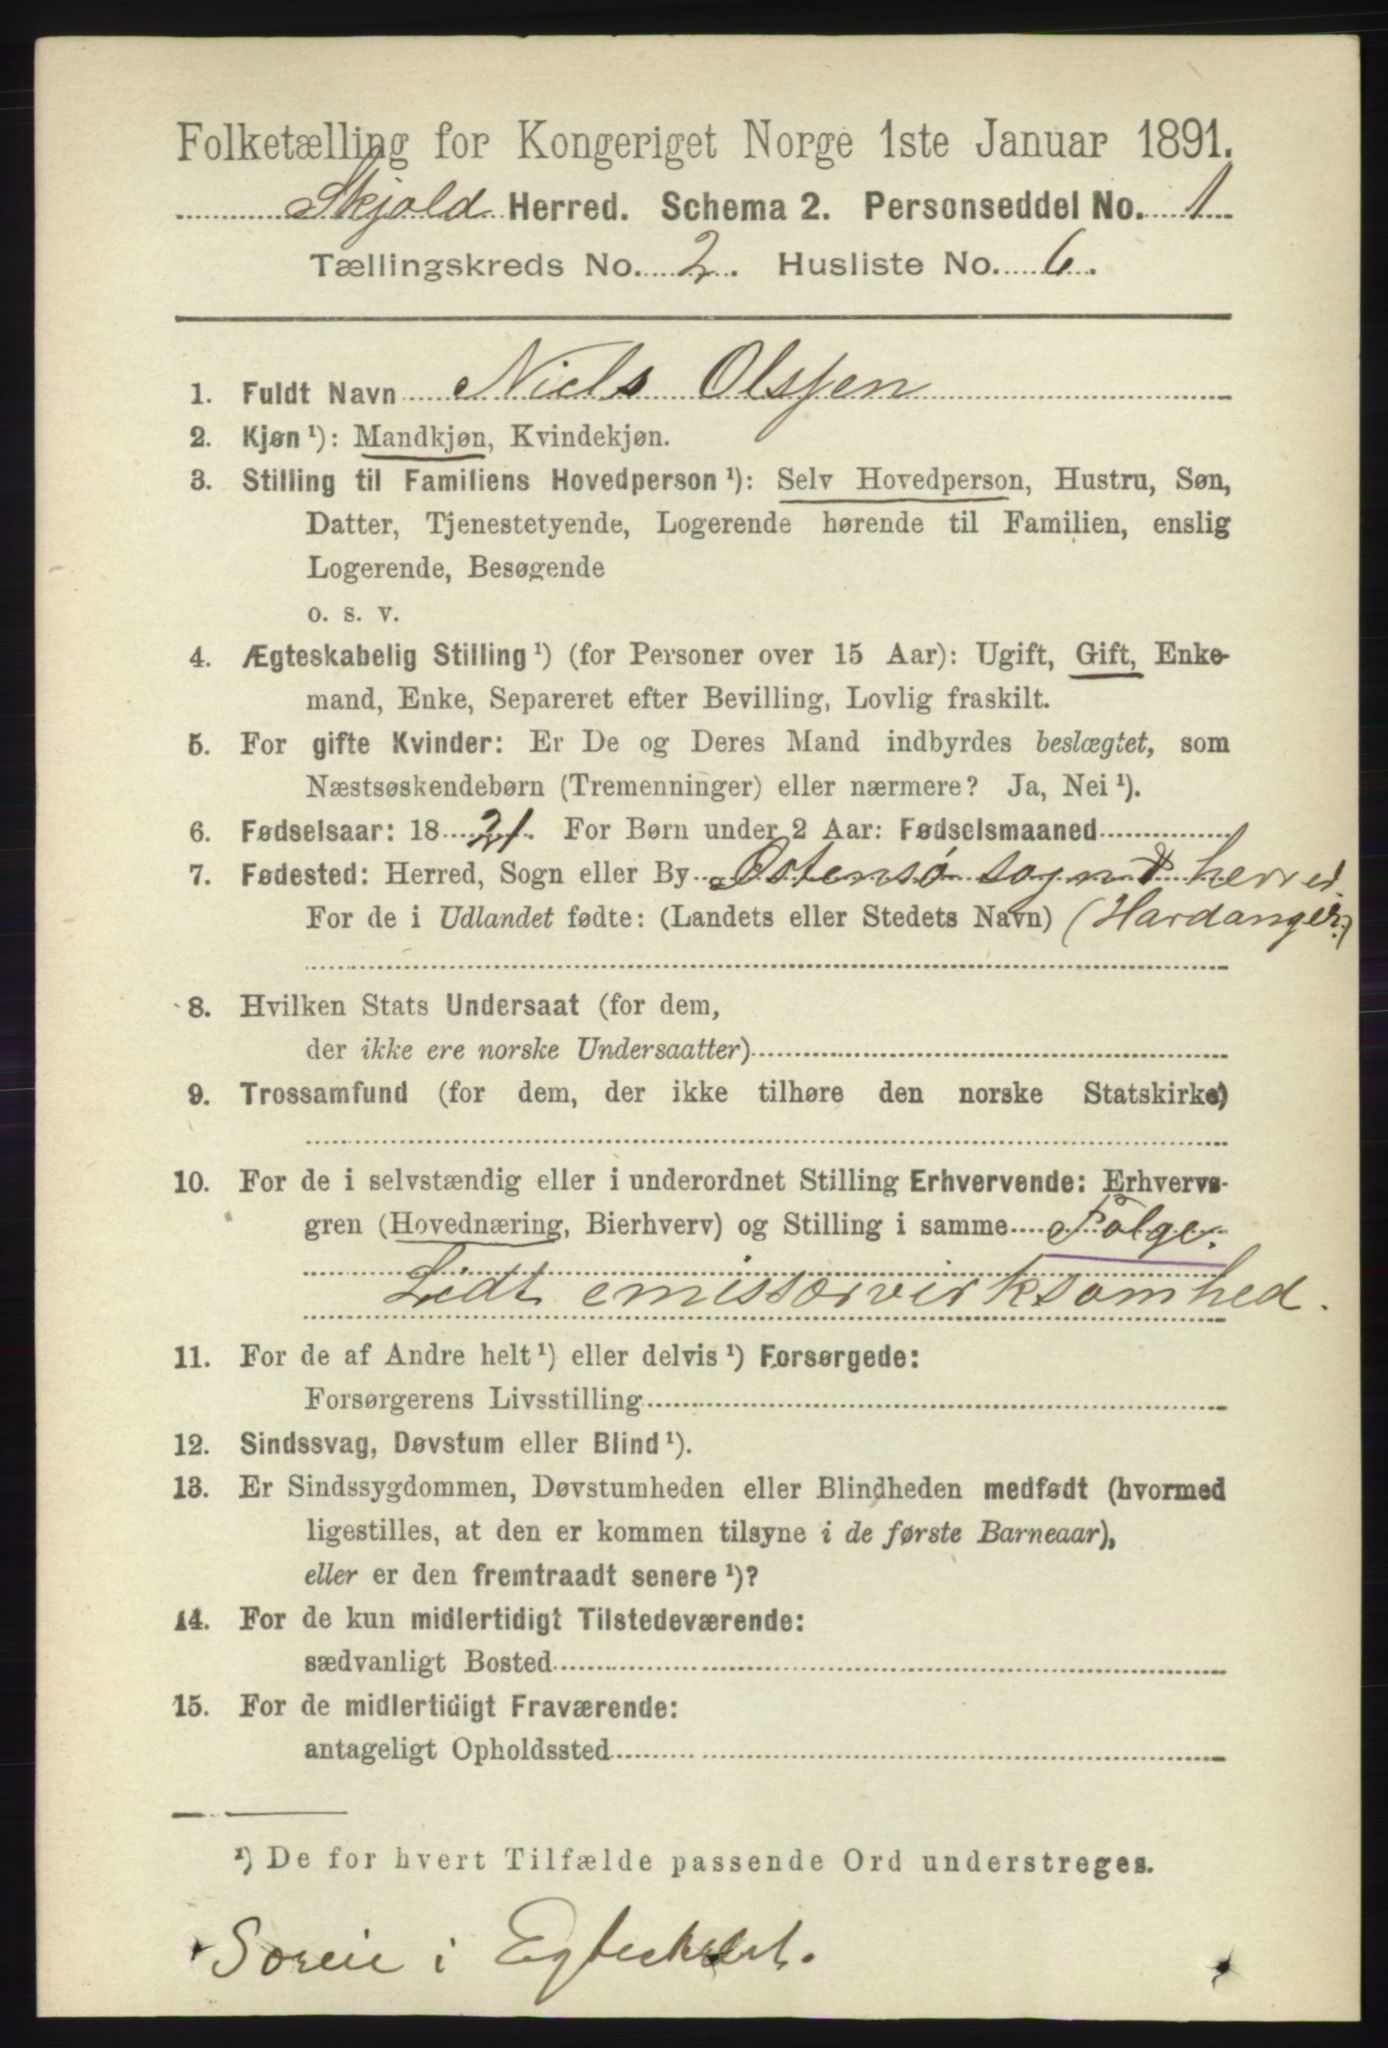 Folketælling for Kongeriget Norge 1ste Januar 1891.
Skjold Herred. Schema 2. Personseddel No. 1
Tællingskreds No. 2. Husliste No. 6.
1. Fuldt Navn Niels Olssen
2. Kjøn ¹): Mandkjøn, Kvindekjøn.
3. Stilling til Familiens Hovedperson ¹): Selv Hovedperson, Hustru, Søn,
Datter, Tjenestetyende, Logerende hørende til Familien, enslig
Logerende, Besøgende
o. s. v.
4. Ægteskabelig Stilling ¹) (for Personer over 15 Aar): Ugift, Gift, Enke-
mand, Enke, Separeret efter Bevilling, Lovlig fraskilt.
5. For gifte Kvinder: Er De og Deres Mand indbyrdes beslægtet, som
Næstsøskendebørn (Tremenninger) eller nærmere? Ja, Nei ¹).
6. Fødselsaar: 18 21. For Børn under 2 Aar: Fødselsmaaned
7. Fødested: Herred, Sogn eller By Ostensø sogn & herred.
For de i Udlandet fødte: (Landets eller Stedets Navn) (Hardanger.)
8. Hvilken Stats Undersaat (for dem,
der ikke ere norske Undersaatter)
9. Trossamfund (for dem, der ikke tilhøre den norske Statskirke)
10. For de i selvstændig eller i underordnet Stilling Erhvervende: Erhvervs-
gren (Hovednæring, Bierhverv) og Stilling i samme Folge.
Lidt emissærvirksomhed.
11. For de af Andre helt ¹) eller delvis ¹) Forsørgede:
Forsørgerens Livsstilling
12. Sindssvag, Døvstum eller Blind ¹).
13. Er Sindssygdommen, Døvstumheden eller Blindheden medfødt (hvormed
ligestilles, at den er kommen tilsyne i de første Barneaar),
eller er den fremtraadt senere ¹)?
14. For de kun midlertidigt Tilstedeværende:
sædvanligt Bosted
15. For de midlertidigt Fraværende:
antageligt Opholdssted
¹) De for hvert Tilfælde passende Ord understreges.
i